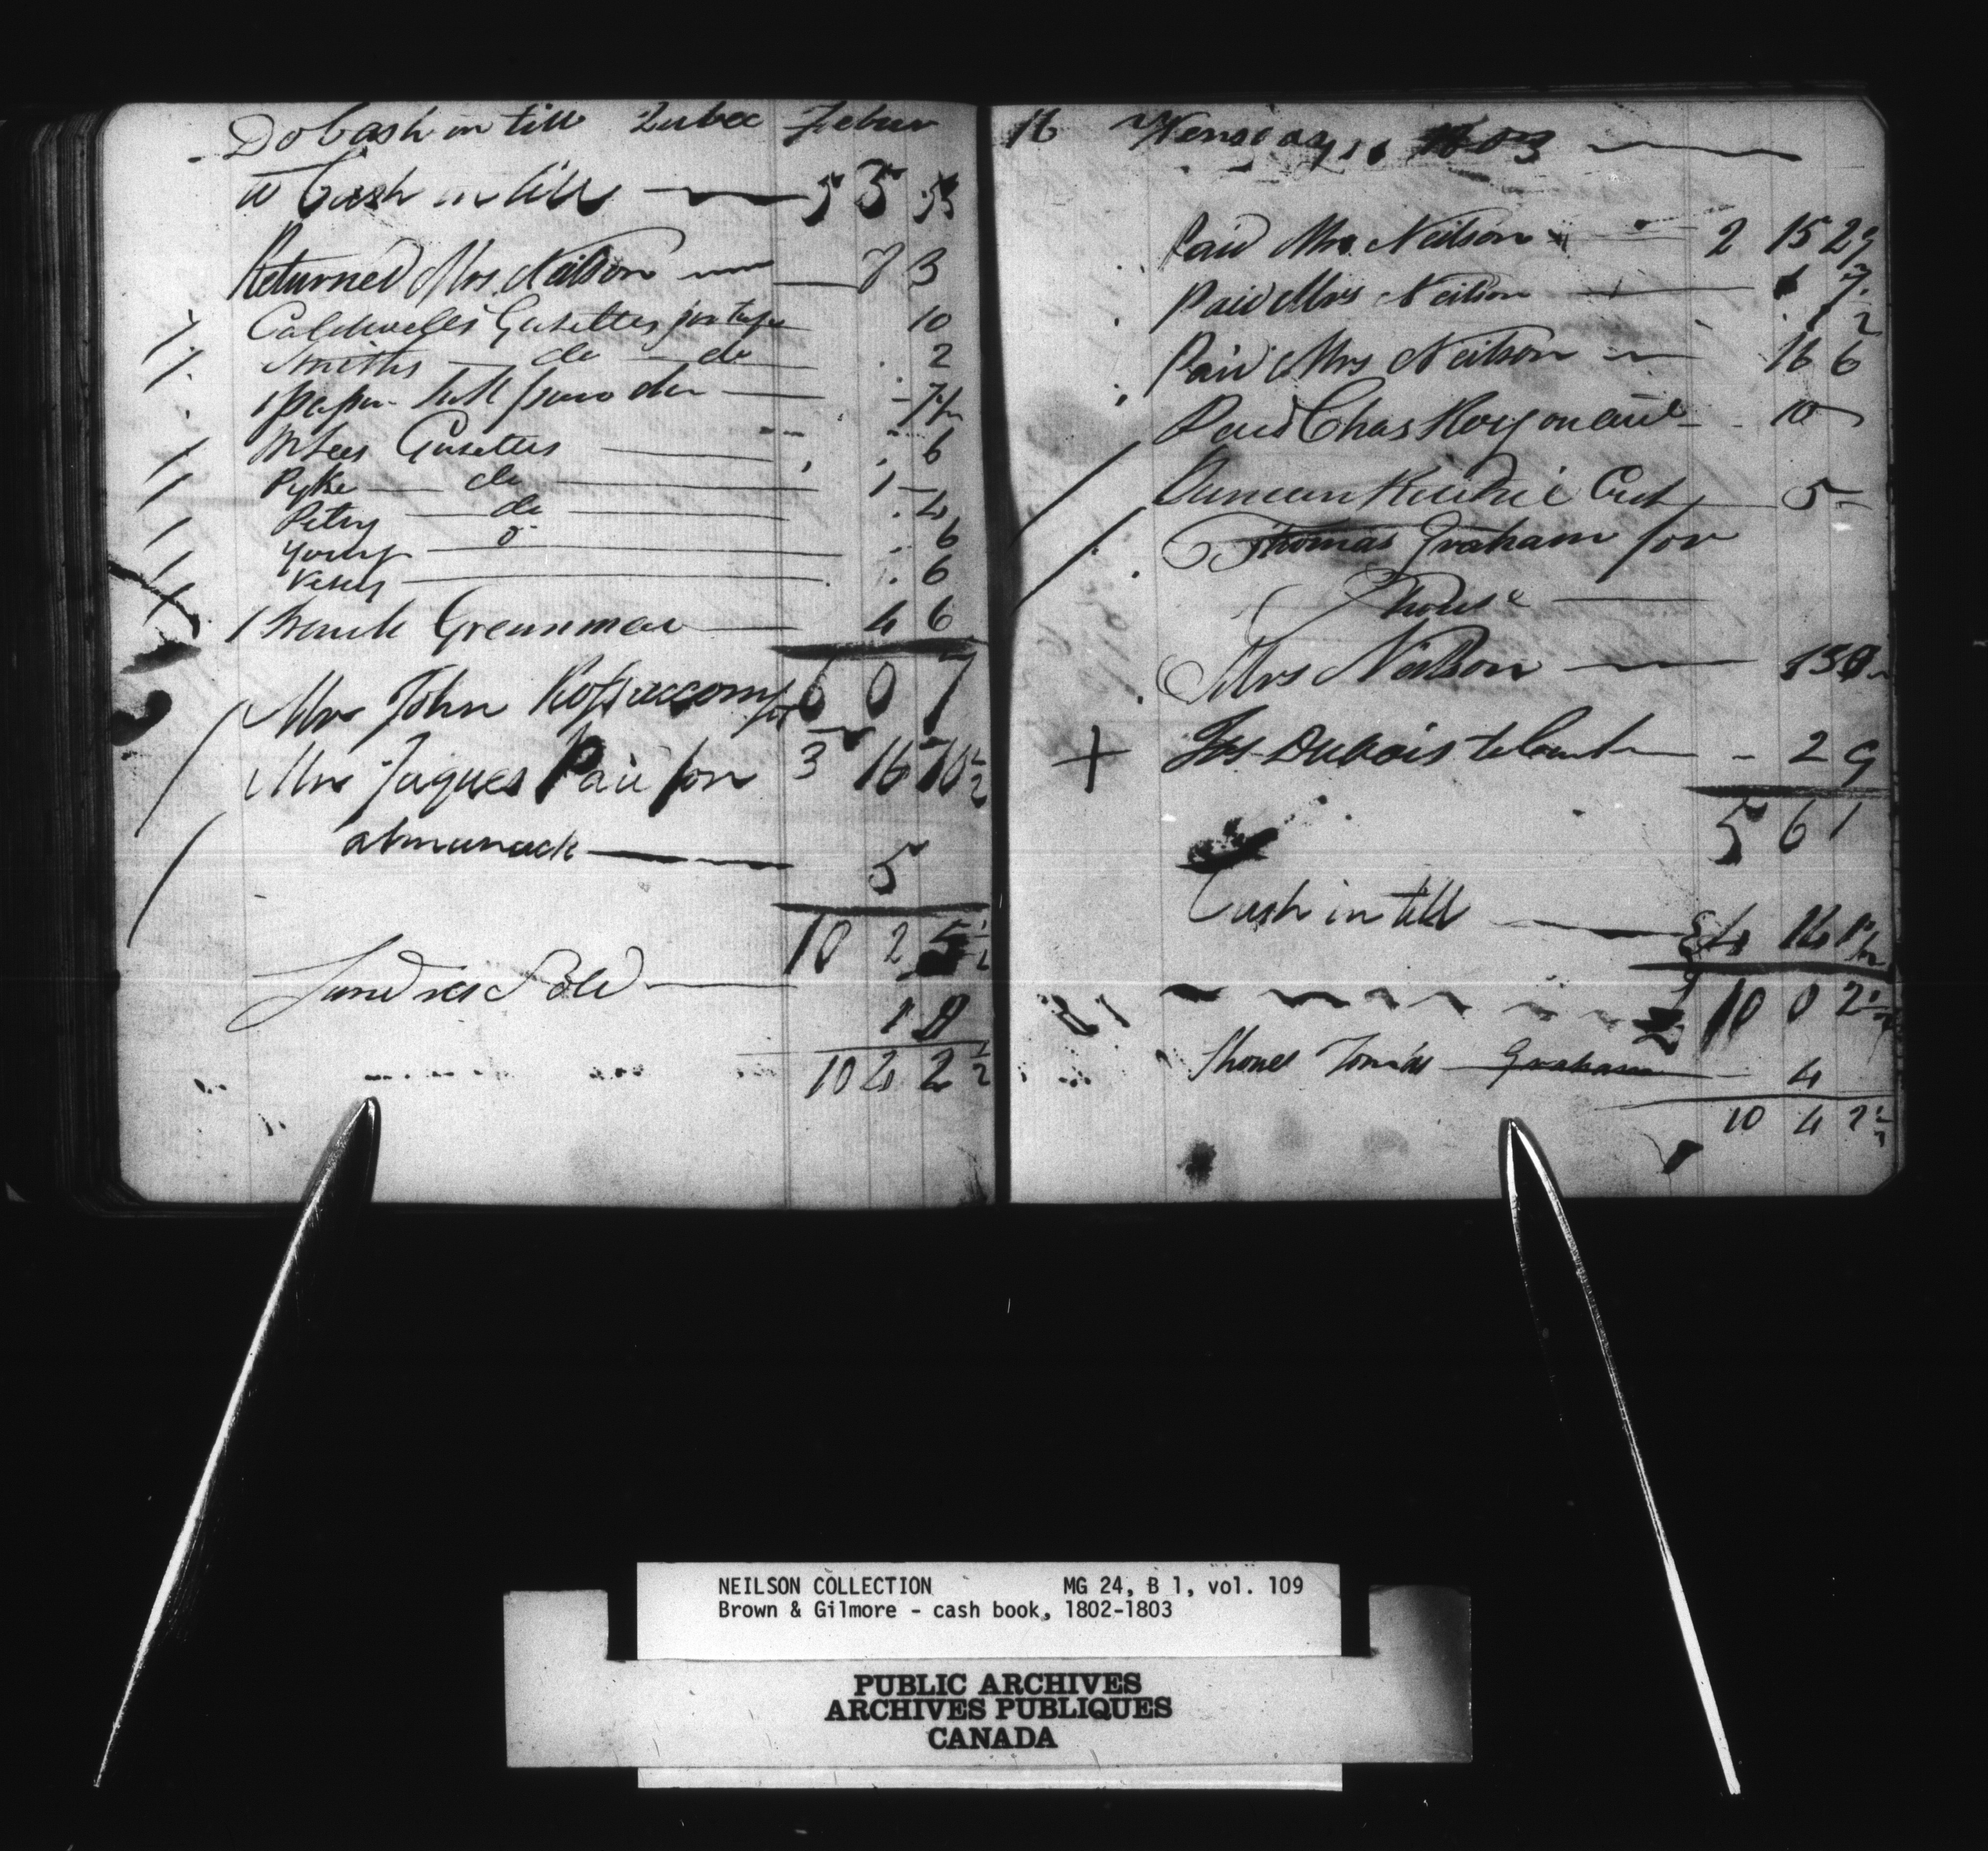 Do Cash in till Quebec Februr
to Cash in till 5 5 5½
Returned Mrs Neilson 7 3
Caldwells Gazettes postage 10
Smiths do do 2
1 paper Ink powder 7½
Gazettes 6
Pyke do 1
Petry do 4
Young do 6
6
1 French Grammar 4 6
6 0 7
Mr John Ross accompt 3 16 10½
Mr Jaques Paid for
almanack 5
10 2 5½
Sundries Sold 1 9
10 4 2½
16 Wensday 1803
Paid Mrs Neilson 2 15 2
Paid Mrs Neilson 7½
Paid Mrs Neilson 16 6
Paid Chas Roy on acct 10
Duncan Cut 5
Thomas Graham for
Shoes
Mrs Neilson
+ Jos Dubois to Cash 2 9
5 6 1
Cash in till 4 14 1½
10 0 2½
Shoes Tomas Graham 4
10 4 2½
NEILSON COLLECTION MG 24, B 1, vol. 109
Brown & Gilmore - cash book, 1802-1803
PUBLIC ARCHIVES
ARCHIVES PUBLIQUES
CANADA